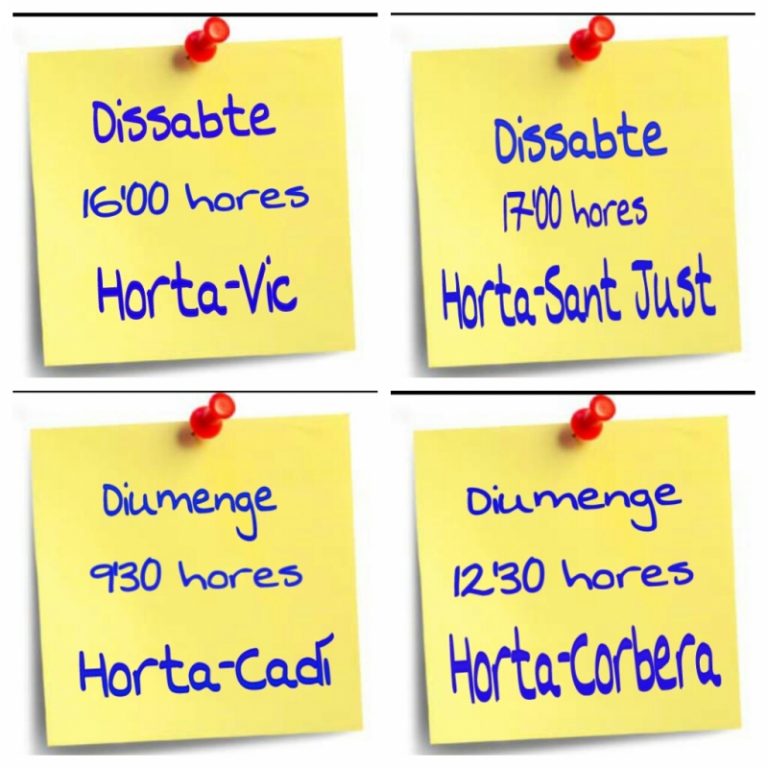 Dissabte
16'00 hores
Horta-Vic
Dissabte
17'00 hores
Horta-Sant Just
Diumenge
9'30 hores
Horta-Cadí
Diumenge
12'30 hores
Horta-Corbera